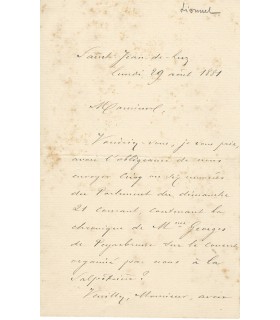 Lionnet
Saint-Jean-de-Luz
lundi 29 août 1881
Monsieur,
Voudriez-vous, je vous prie,
avoir l'obligeance de nous
envoyer cinq ou dix numéros
du Parlement du dimanche
21 courant, contenant la
chronique de Mme Georges
de Peyrebrune sur le concert
organisé par nous à la
Salpêtrière ?
Veuillez, Monsieur, avec